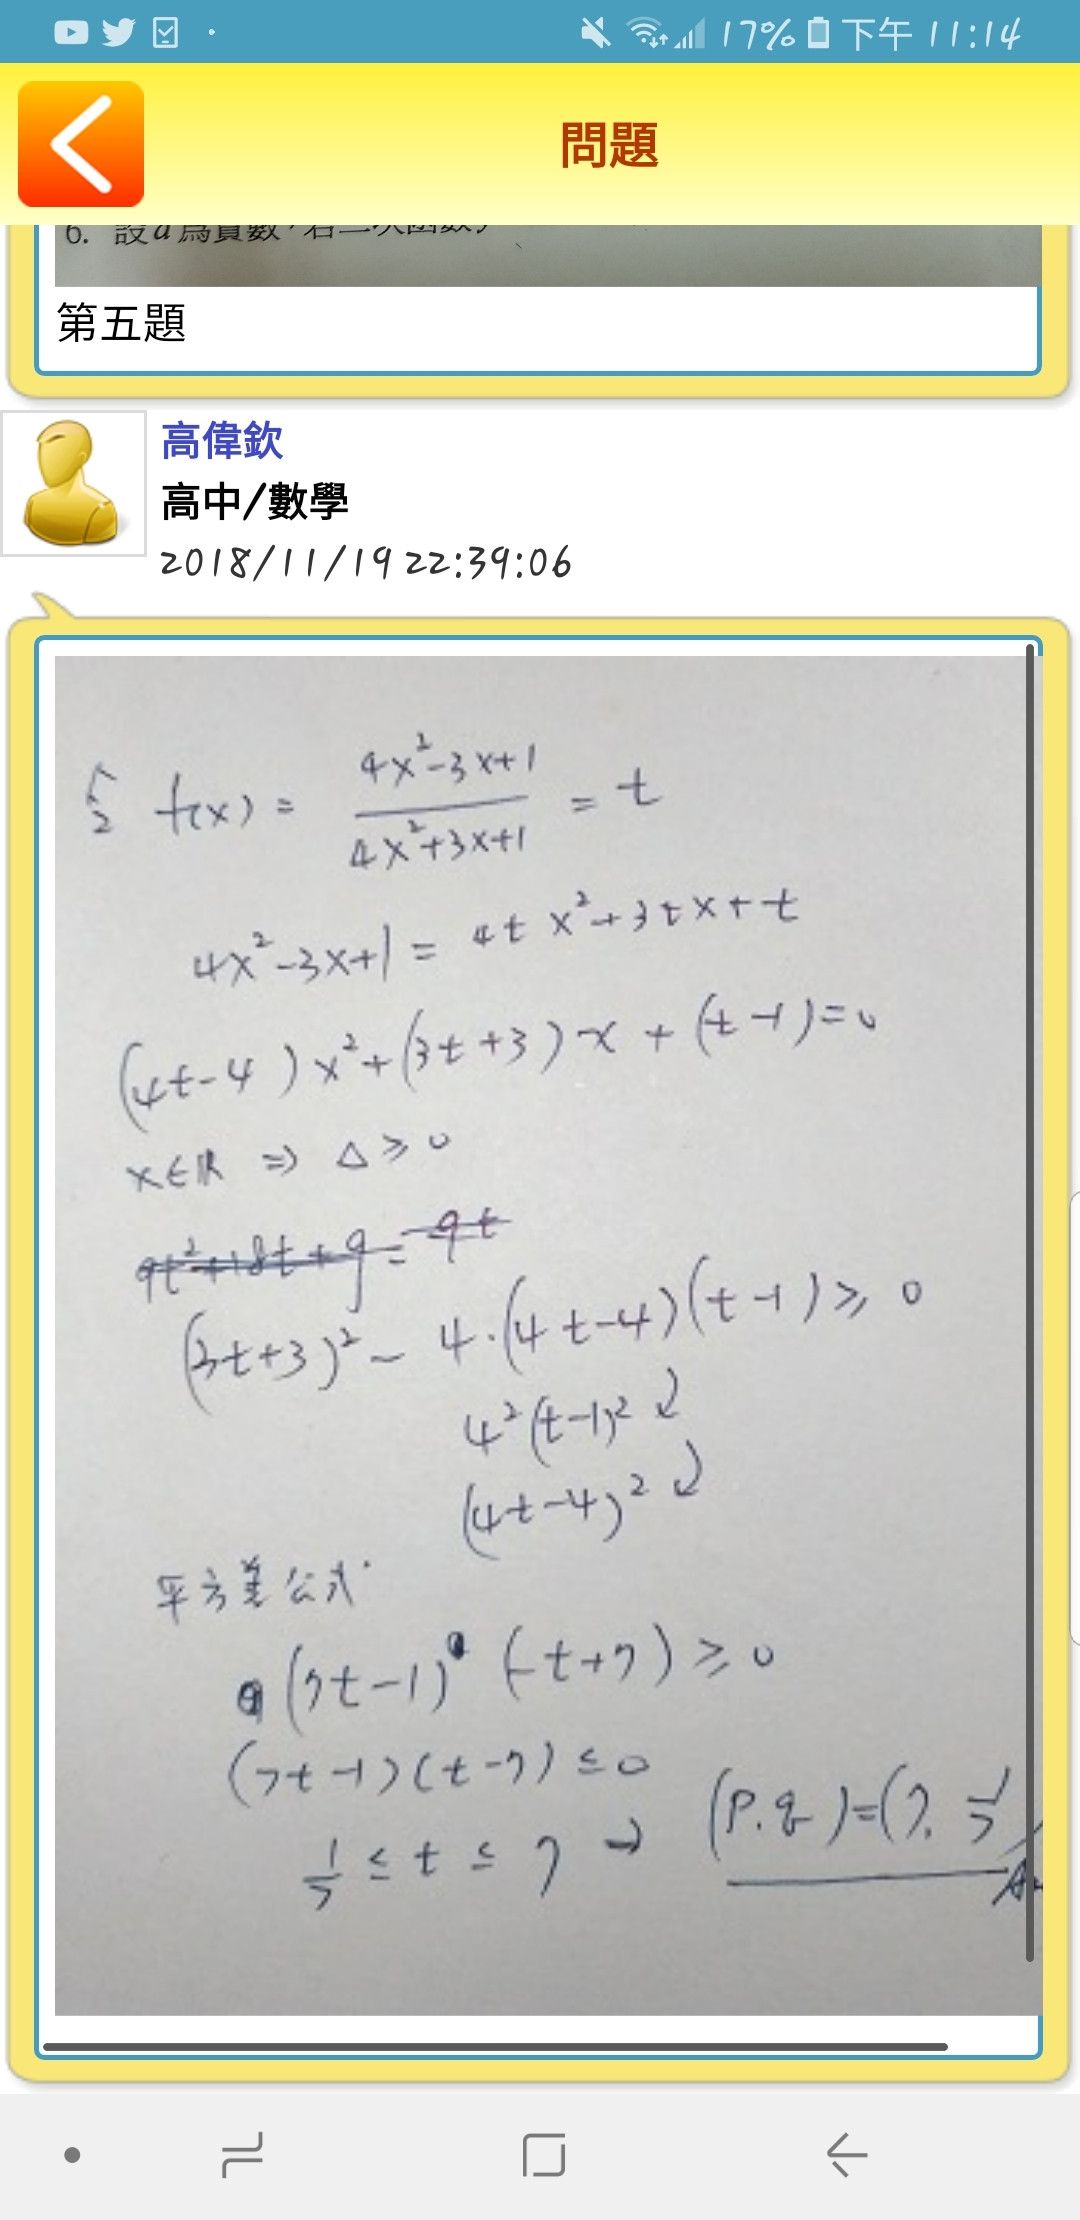 17% 下午 11:14
問題
6. 設a為實數,若二次函數y
第五題
高偉欽
高中/數學
2018/11/19 22:39:06
令 f(x) = (4x²-3x+1)/(4x²+3x+1) = t
4x²-3x+1 = 4tx²+3tx+t
(4t-4)x²+(3t+3)x+(t-1)=0
x∈ℝ ⇒ △≥0
9t²+18t+9=9t
(3t+3)²-4·(4t-4)(t-1)≥0
4²(t-1)²
(4t-4)²
平方差公式
(7t-1)(-t+7)≥0
(7t-1)(t-7)≤0
1/7≤t≤7 → (p.q)=(7.1/7)